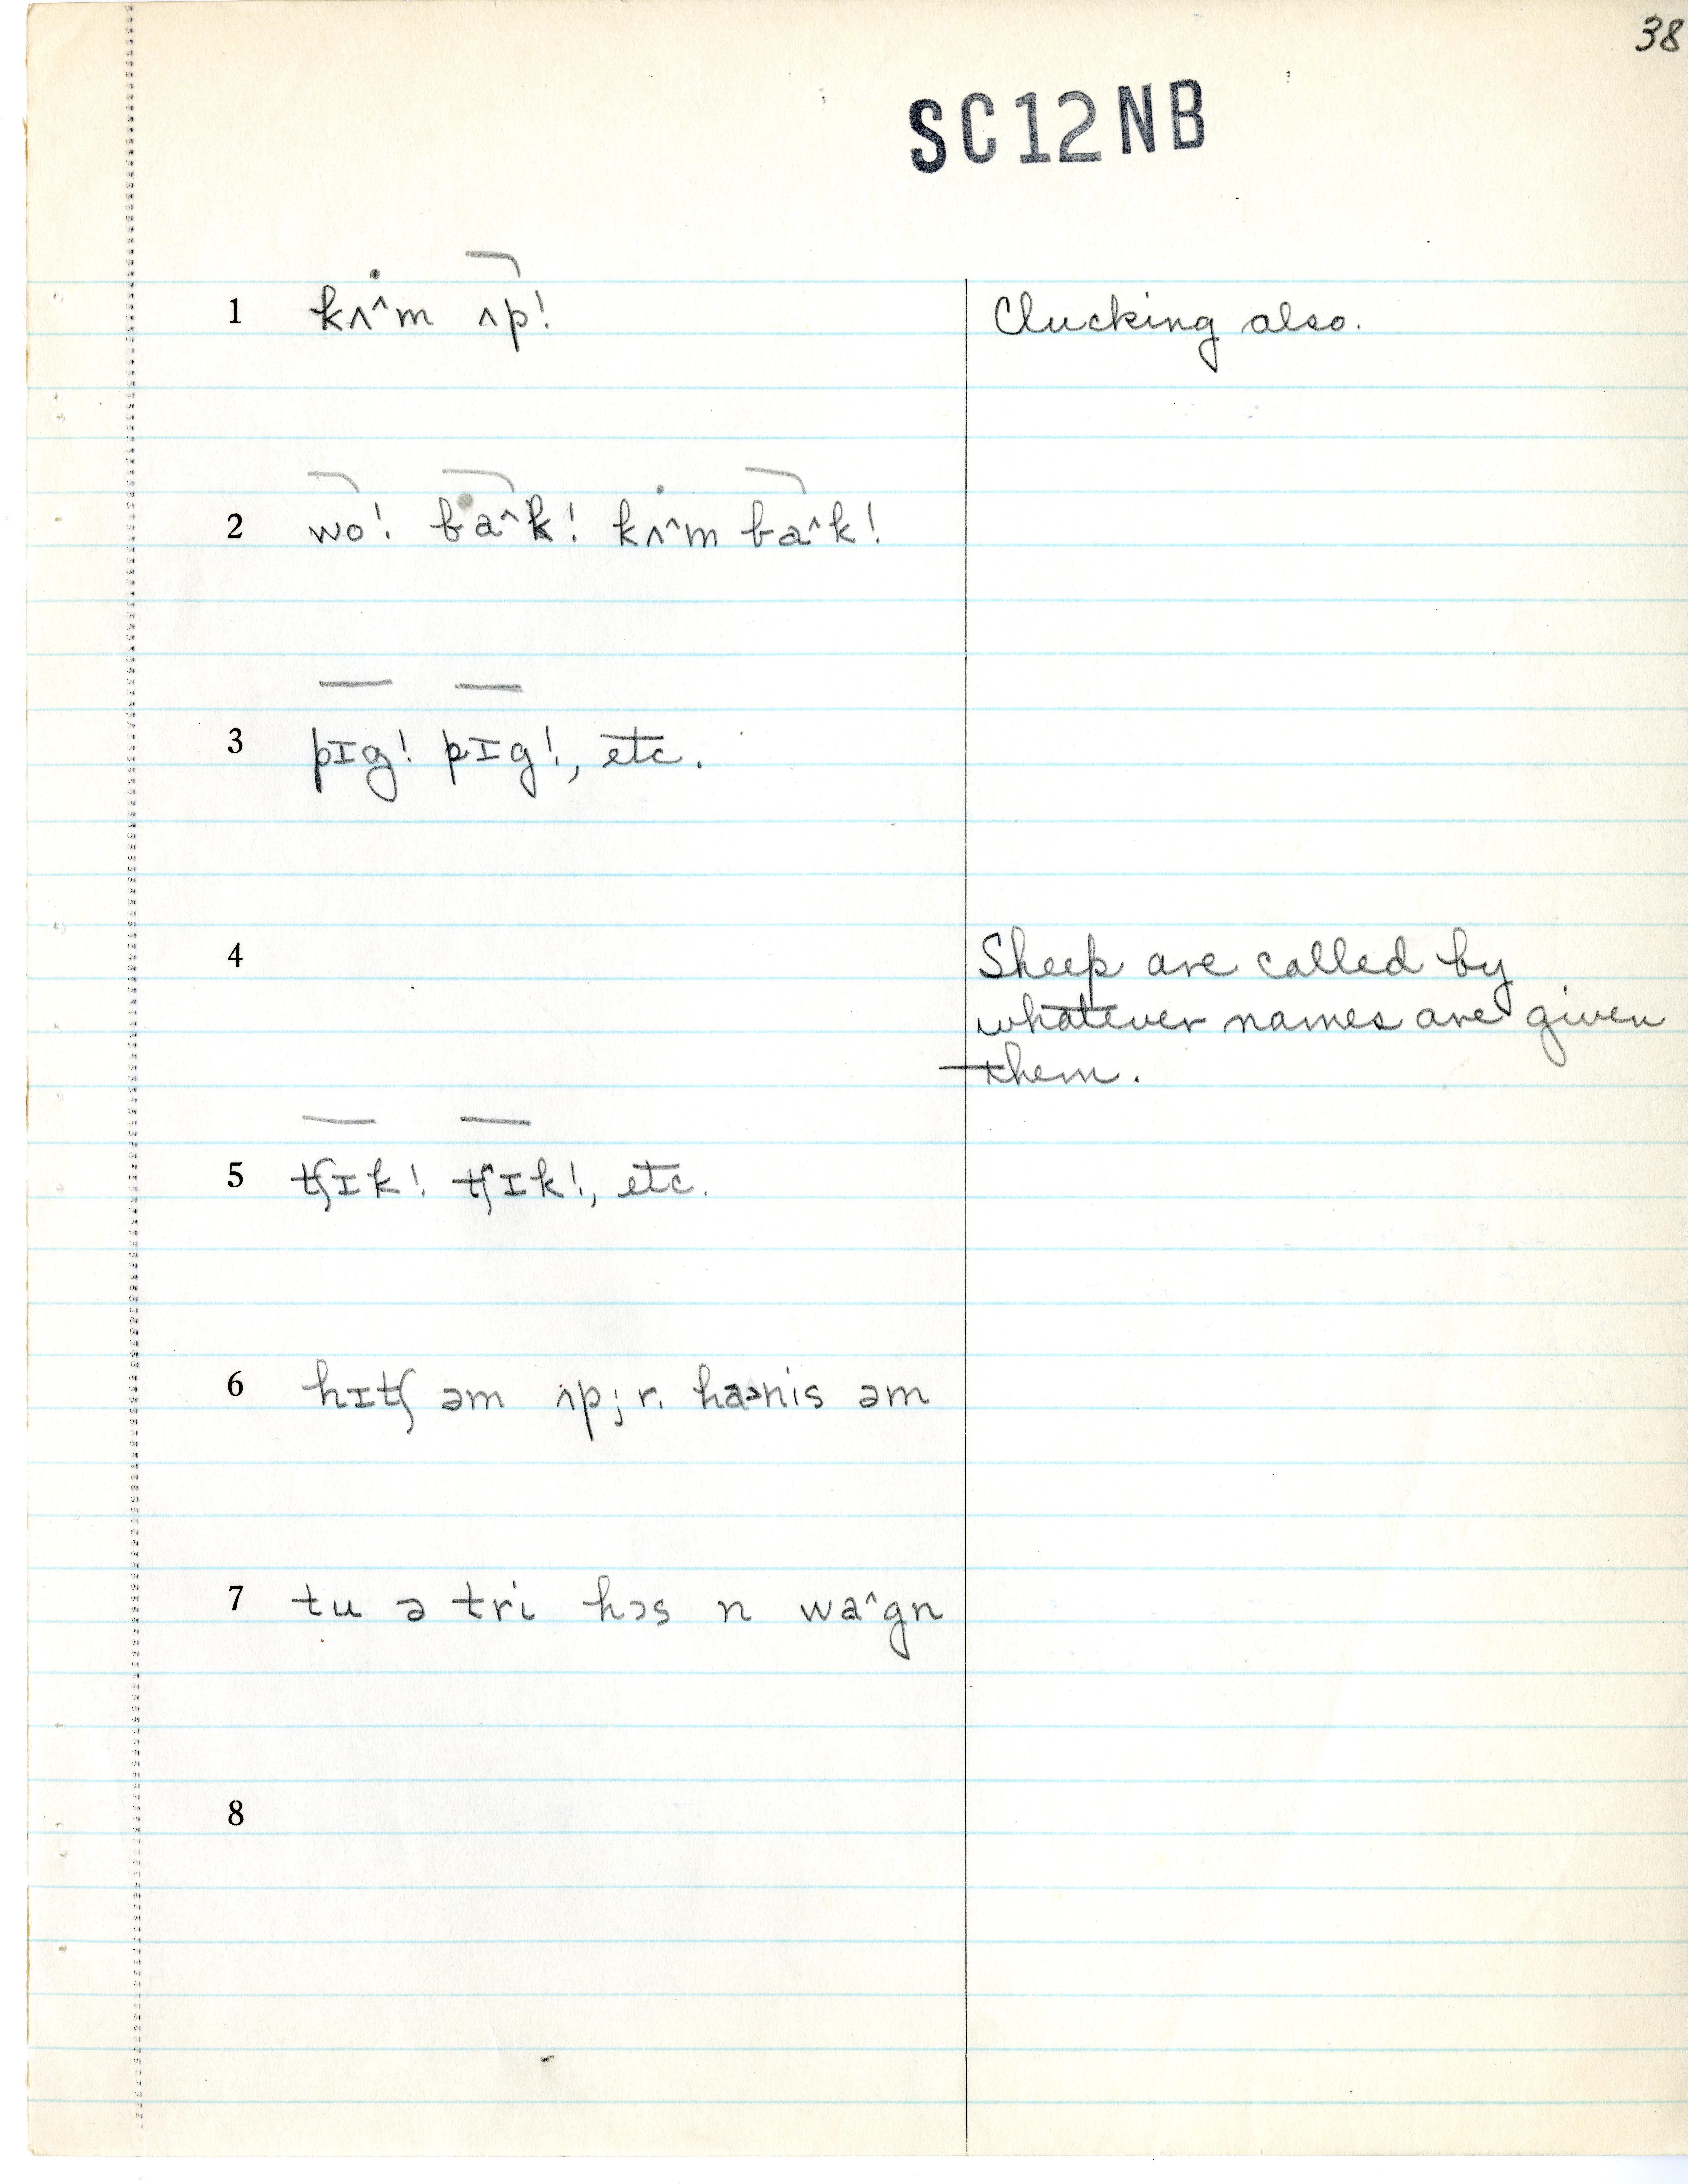 38
SC12NB
1 kʌ˄m ʌp! Clucking also.
2 wo! ba˄k! kʌ˄m ba˄k!
3 pɪg! pɪg!, etc.
4 Sheep are called by
whatever names are given
them.
5 tʃɪk! tʃɪk!, etc.
6 hɪtʃ əm ʌp; r. haɚnis əm
7 tu ə tri hɔs n wa˄gn
8